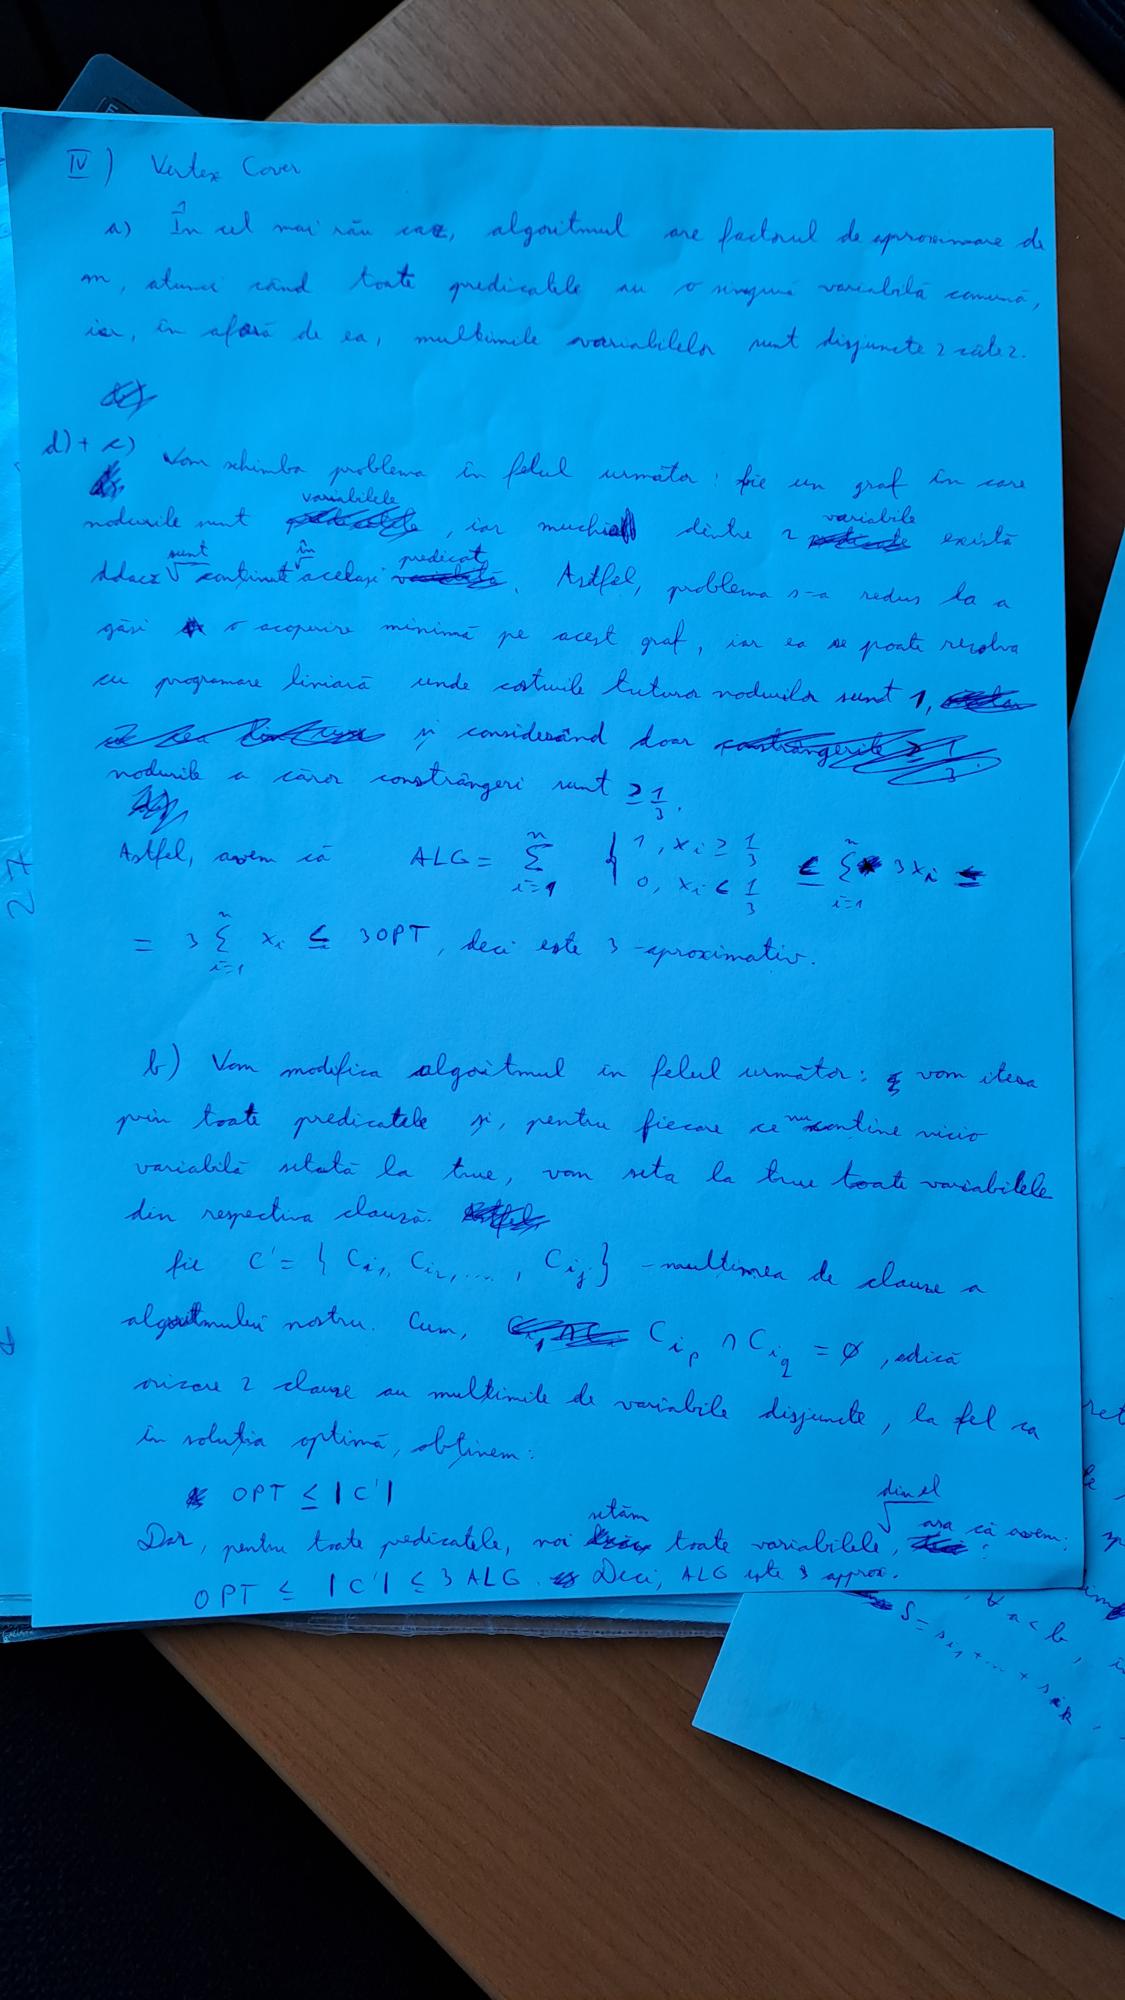 IV) Vertex Cover
a) În cel mai rău caz, algoritmul are factorul de aproximare de
m, atunci când toate predicatele au o singură variabilă comună,
iar, în afară de ea, multimile variabilelor sunt disjuncte 2 câte 2.
d) + c) Vom schimba problema în felul următor: fie un graf în care
nodurile sunt variabilele, iar muchia dintre 2 variabile există
ddacă sunt continute în același predicat. Astfel, problema s-a redus la a
găsi o acoperire minimă pe acest graf, iar ea se poate rezolva
cu programare liniară unde costurile tuturor nodurilor sunt 1,
și considerând doar
nodurile a căror constrângeri sunt ≥ 1/3.
Astfel, avem că ALG = Σ_{i=1}^{n} { 1, xi ≥ 1/3 ; 0, xi < 1/3 ≤ Σ_{i=1}^{n} 3xi =
= 3 Σ_{i=1}^{n} xi ≤ 3OPT, deci este 3-aproximativ.
b) Vom modifica algoritmul în felul următor: vom itera
prin toate predicatele și, pentru fiecare ce nu contine nicio
variabilă setată la true, vom seta la true toate variabilele
din respectiva clauză.
fie C' = { Ci1, Ci2, ..., Cij } - multimea de clauze a
algoritmului nostru. Cum, Cip ∩ Ciq = ∅, adică
oricare 2 clauze au multimile de variabile disjuncte, la fel ca
în soluția optimă, obținem:
OPT ≤ |C'|
Dar, pentru toate predicatele, noi setăm toate variabilele din el, așa că avem:
OPT ≤ |C'| ≤ 3 ALG. Deci, ALG este 3 approx.
27
S = si1 + ... + sik
∀ a < b,